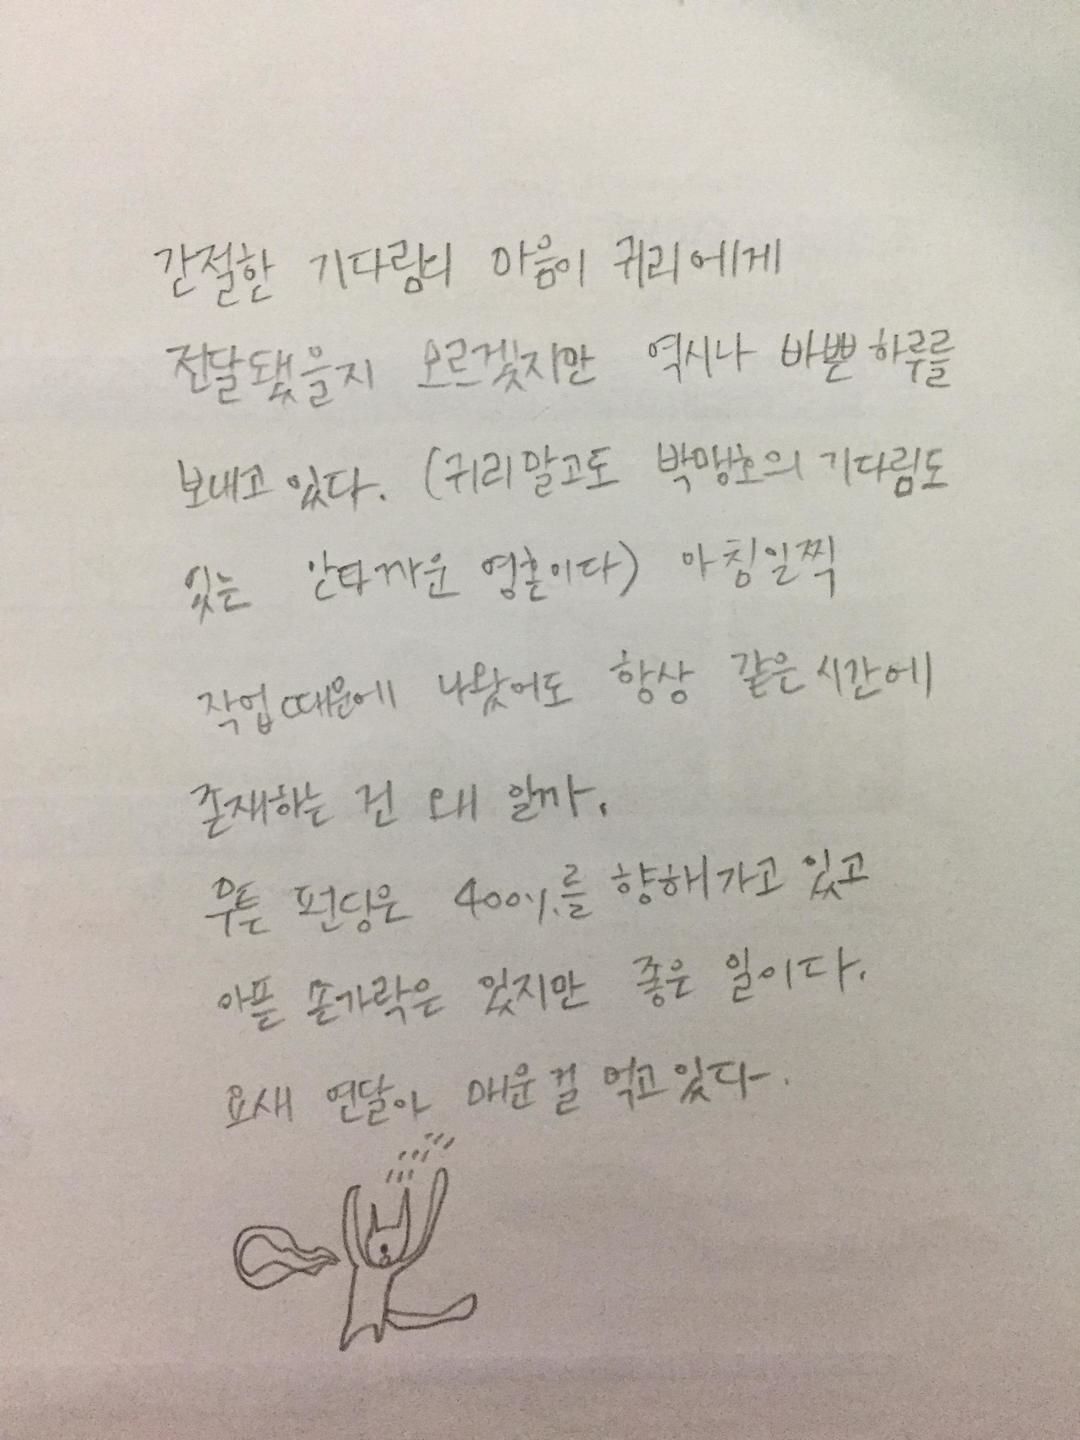 간절한 기다림의 마음이 귀리에게
전달됐을지 모르겠지만 역시나 바쁜 하루를
보내고 있다. (귀리말고도 박맹호의 기다림도
있는 안타까운 영혼이다) 아침일찍
작업때문에 나왔어도 항상 같은 시간에
존재하는 건 왜 일까.
우튼 펀딩은 400%를 향해가고 있고
아픈 손가락은 있지만 좋은 일이다.
요새 연달아 매운걸 먹고있다.